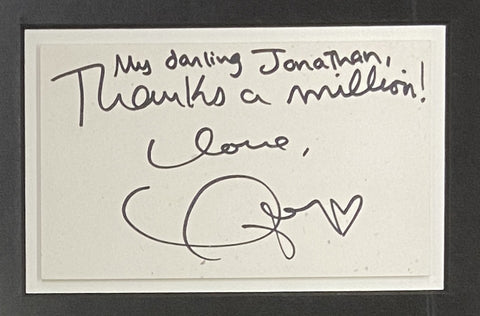 My darling Jonathan,
Thanks a million!
Love,